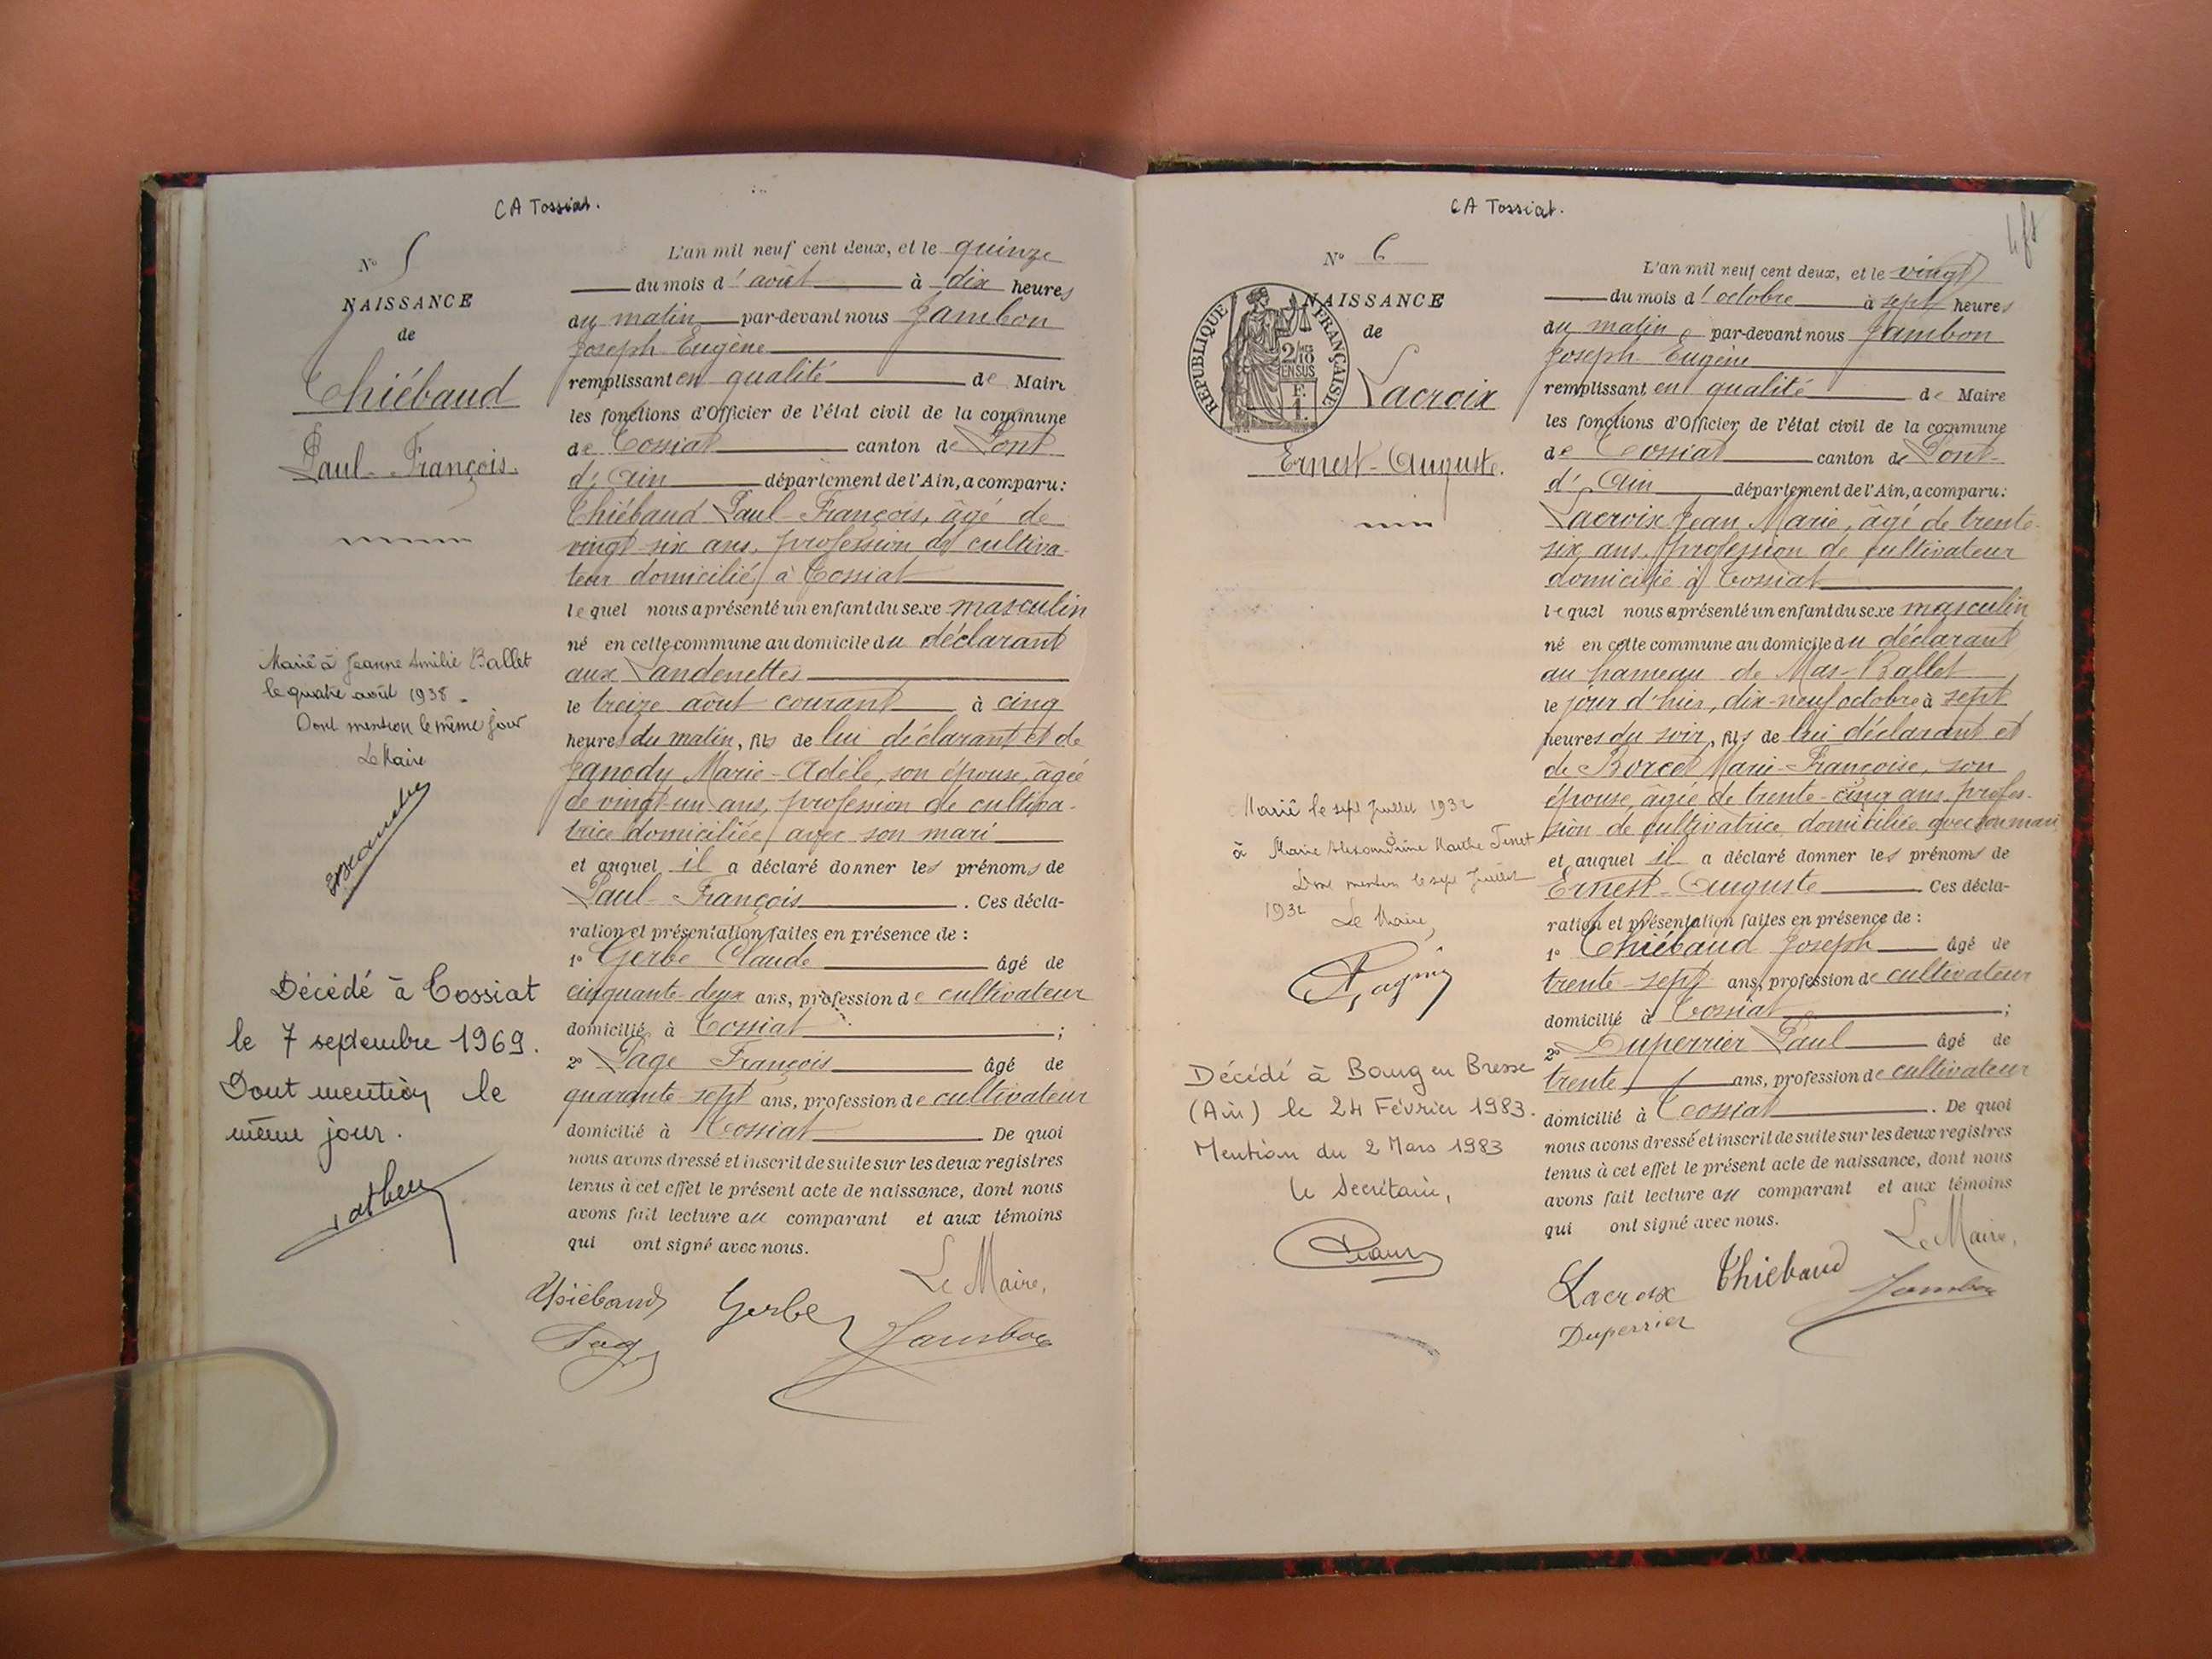 CA Tossiat.
N° 5
NAISSANCE
de
Thiébaud
Paul-François.
Marié à Jeanne Emilie Ballet
le quatre août 1938.
Dont mention le même jour
Le Maire
Décédé à Tossiat
le 7 septembre 1969.
Dont mention le
même jour.
L'an mil neuf cent deux, et le quinze
du mois d'août à dix heures
du matin par-devant nous Jambon
Joseph Eugène
remplissant en qualité de Maire
les fonctions d'Officier de l'état civil de la commune
de Tossiat canton de Pont
d'Ain département de l'Ain, a comparu:
Thiébaud Paul-François, âgé de
vingt six ans, profession de cultiva-
teur domicilié à Tossiat
lequel nous a présenté un enfant du sexe masculin
né en cette commune au domicile du déclarant
aux Landenettes
le treize août courant à cinq
heures du matin, fils de lui déclarant et de
Janody Marie-Adèle, son épouse, âgée
de vingt-un ans, profession de cultiva-
trice domiciliée avec son mari
et auquel il a déclaré donner les prénoms de
Paul-François. Ces décla-
ration et présentation faites en présence de :
1° Gerbe Claude âgé de
cinquante-deux ans, profession de cultivateur
domicilié à Tossiat ;
2° Page François âgé de
quarante-sept ans, profession de cultivateur
domicilié à Tossiat De quoi
nous avons dressé et inscrit de suite sur les deux registres
tenus à cet effet le présent acte de naissance, dont nous
avons fait lecture au comparant et aux témoins
qui ont signé avec nous.
Le Maire,
Thiébaud Gerbe
Page Jambon
CA Tossiat.
4 fs
N° 6
NAISSANCE
de
RÉPUBLIQUE FRANÇAISE
2/10
EN SUS
Lacroix
Ernest-Auguste.
Marié le sept Juillet 1932
à Marie Alexandrine Marthe Tenet
Dont mention le sept Juillet
1932 Le Maire,
Décédé à Bourg en Bresse
(Ain) le 24 Février 1983.
Mention du 2 Mars 1983
le Secrétaire,
L'an mil neuf cent deux, et le vingt
du mois d'octobre à sept heures
du matin par-devant nous Jambon
Joseph Eugène
remplissant en qualité de Maire
les fonctions d'Officier de l'état civil de la commune
de Tossiat canton de Pont-
d'Ain département de l'Ain, a comparu:
Lacroix Jean Marie, âgé de trente-
six ans, profession de cultivateur
domicilié à Tossiat
lequel nous a présenté un enfant du sexe masculin
né en cette commune au domicile du déclarant
au hameau de Mas-Ballet
le jour d'hier, dix-neuf octobre à sept
heures du soir, fils de lui déclarant et
de Borcet Marie-Françoise, son
épouse, âgée de trente-cinq ans, profes-
sion de cultivatrice domiciliée avec son mari
et auquel il a déclaré donner les prénoms de
Ernest-Auguste. Ces décla-
ration et présentation faites en présence de :
1° Thiébaud Joseph âgé de
trente-sept ans, profession de cultivateur
domicilié à Tossiat ;
2° Duperrier Paul âgé de
trente ans, profession de cultivateur
domicilié à Tossiat. De quoi
nous avons dressé et inscrit de suite sur les deux registres
tenus à cet effet le présent acte de naissance, dont nous
avons fait lecture au comparant et aux témoins
qui ont signé avec nous.
Le Maire,
Lacroix Thiébaud Jambon
Duperrier